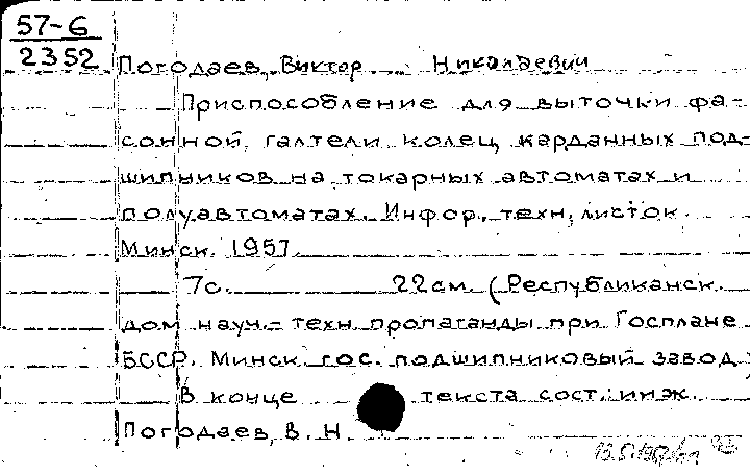 57-6
2352
Погодаев, Виктор Николаевич
Приспособление для выточки фа-
сонной галтели колец карданных под-
шипников на токарных автоматах и
полуавтоматах. Инфор. техн. листок.
Минск. 1957
7с. 22см. (Республиканск.
дом науч.-техн пропаганды при Госплане
БССР. Минск. гос. подшипниковый завод.
В конце текста сост.: инж.
Погодаев, В. Н.